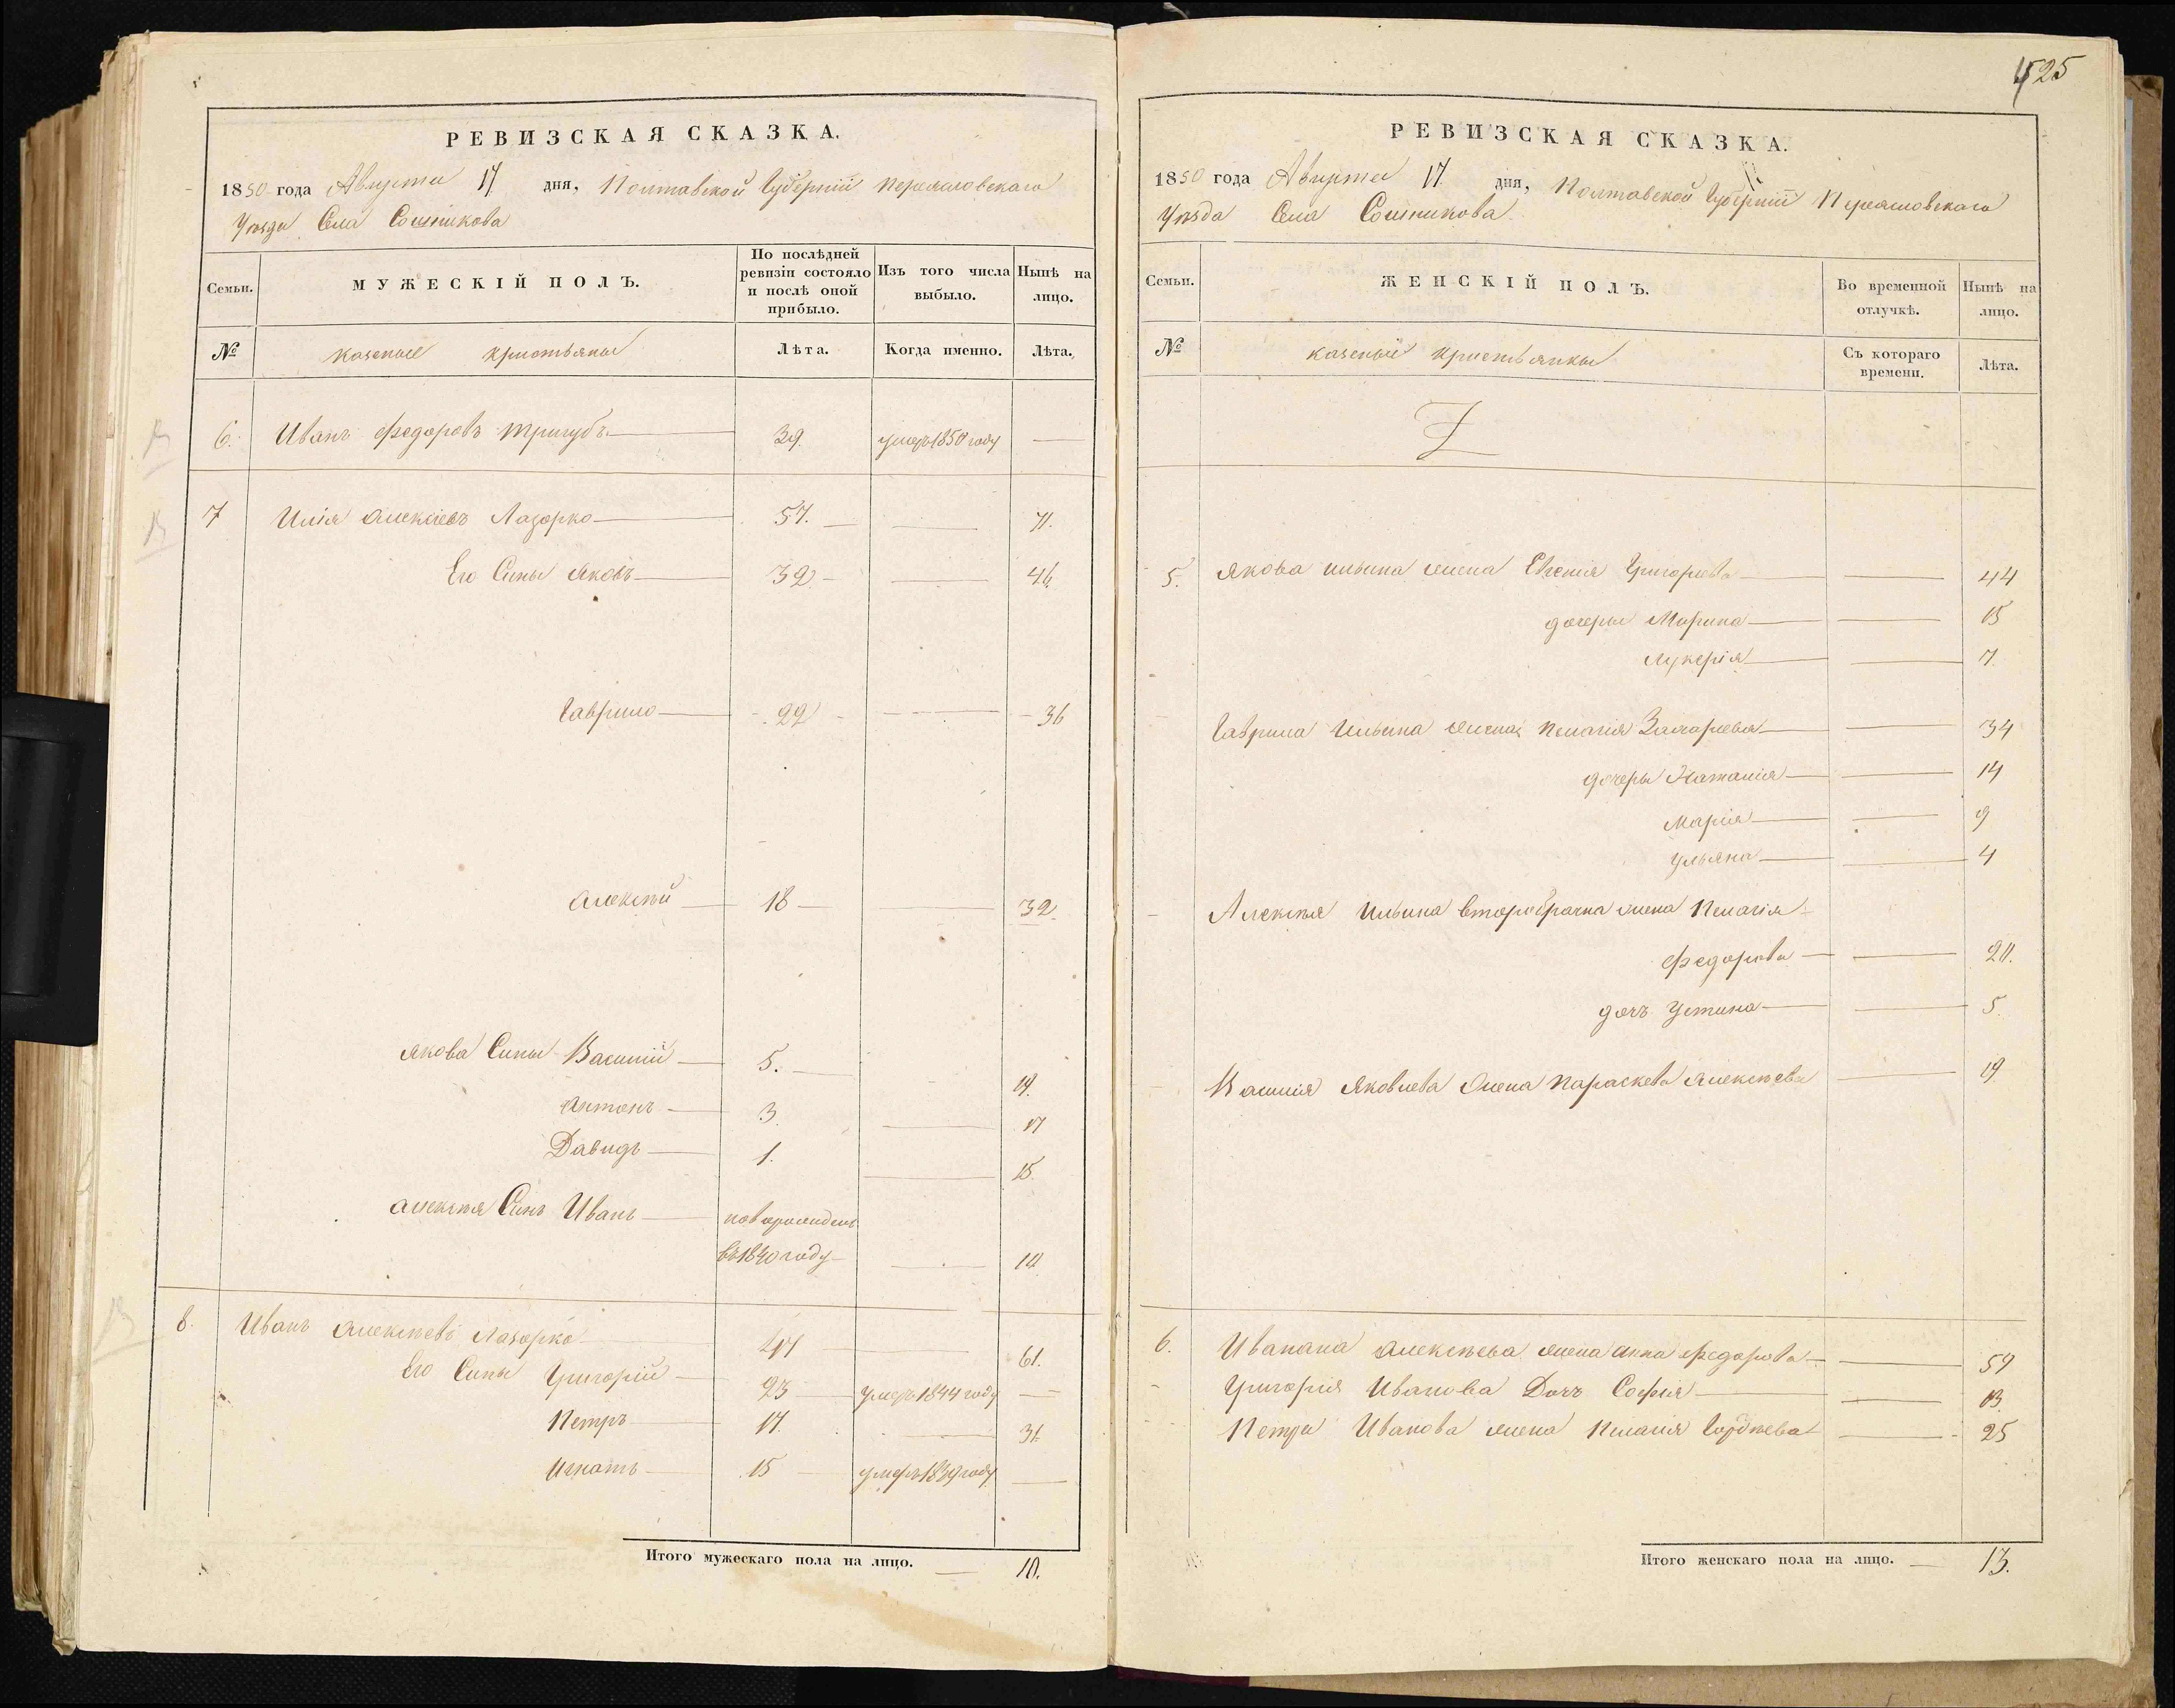 РЕВИЗСКАЯ СКАЗКА.
1850 года Августа 17 дня, Полтавской Губернии Переясловскаго
Уезда Села Сошникова
Семьи.
МУЖЕСКІЙ ПОЛЪ.
По послѣдней ревизіи состояло и послѣ оной прибыло.
Изъ того числа выбыло.
Нынѣ на лицо.
№
казеные
Лѣта.
Когда именно.
Лѣта.
6. Иванъ Федоровъ Тригубъ 39. умеръ 1850 году
7 Илія Алексѣевъ Лазорко 57. 71.
Его Сины Яковъ 32. 46.
Гаврило 22 36
Алексѣй 18 32.
Якова Сины Василій 5. 19.
Антонъ 3. 17
Давидъ 1. 15.
Алексѣя Синъ Иванъ новорожденъ
въ 1840 году 10.
8. Иванъ Алексѣевъ Лазорко 47 61.
Его Сины Григорій 23 умеръ 1844 году
Петръ 17. 31.
Игнатъ 15 умеръ 1849 году
Итого мужескаго пола на лицо. 10.
525
РЕВИЗСКАЯ СКАЗКА.
1850 года Августа 17 дня, Полтавской Губернии Переясловскаго
Уѣзда Села Сошникова
Семьи.
ЖЕНСКІЙ ПОЛЪ.
Во временной отлучкѣ.
Нынѣ на лицо.
№
казеные
Съ котораго времени.
Лѣта.
5. Якова Ильина жена Евгенія Григорьева 44
дочеры Марина 15
Лукерія 7
Гаврила Ильина жена Пелагія Захарьева 34
дочеры Наталія 14
Марія 9
Ульяна 4
Алексѣя Ильина второбрачна жена Пелагія
Федорова 20.
дочъ Устина 5.
Василія Яковлева жена Параскева Алексѣева 19
6. Иванана Алексѣева жена Анна Федорова 59
Григорія Иванова Дочъ Софія 13.
Петра Иванова жена Пелагія Гордѣева 25
Итого женскаго пола на лицо. 13.